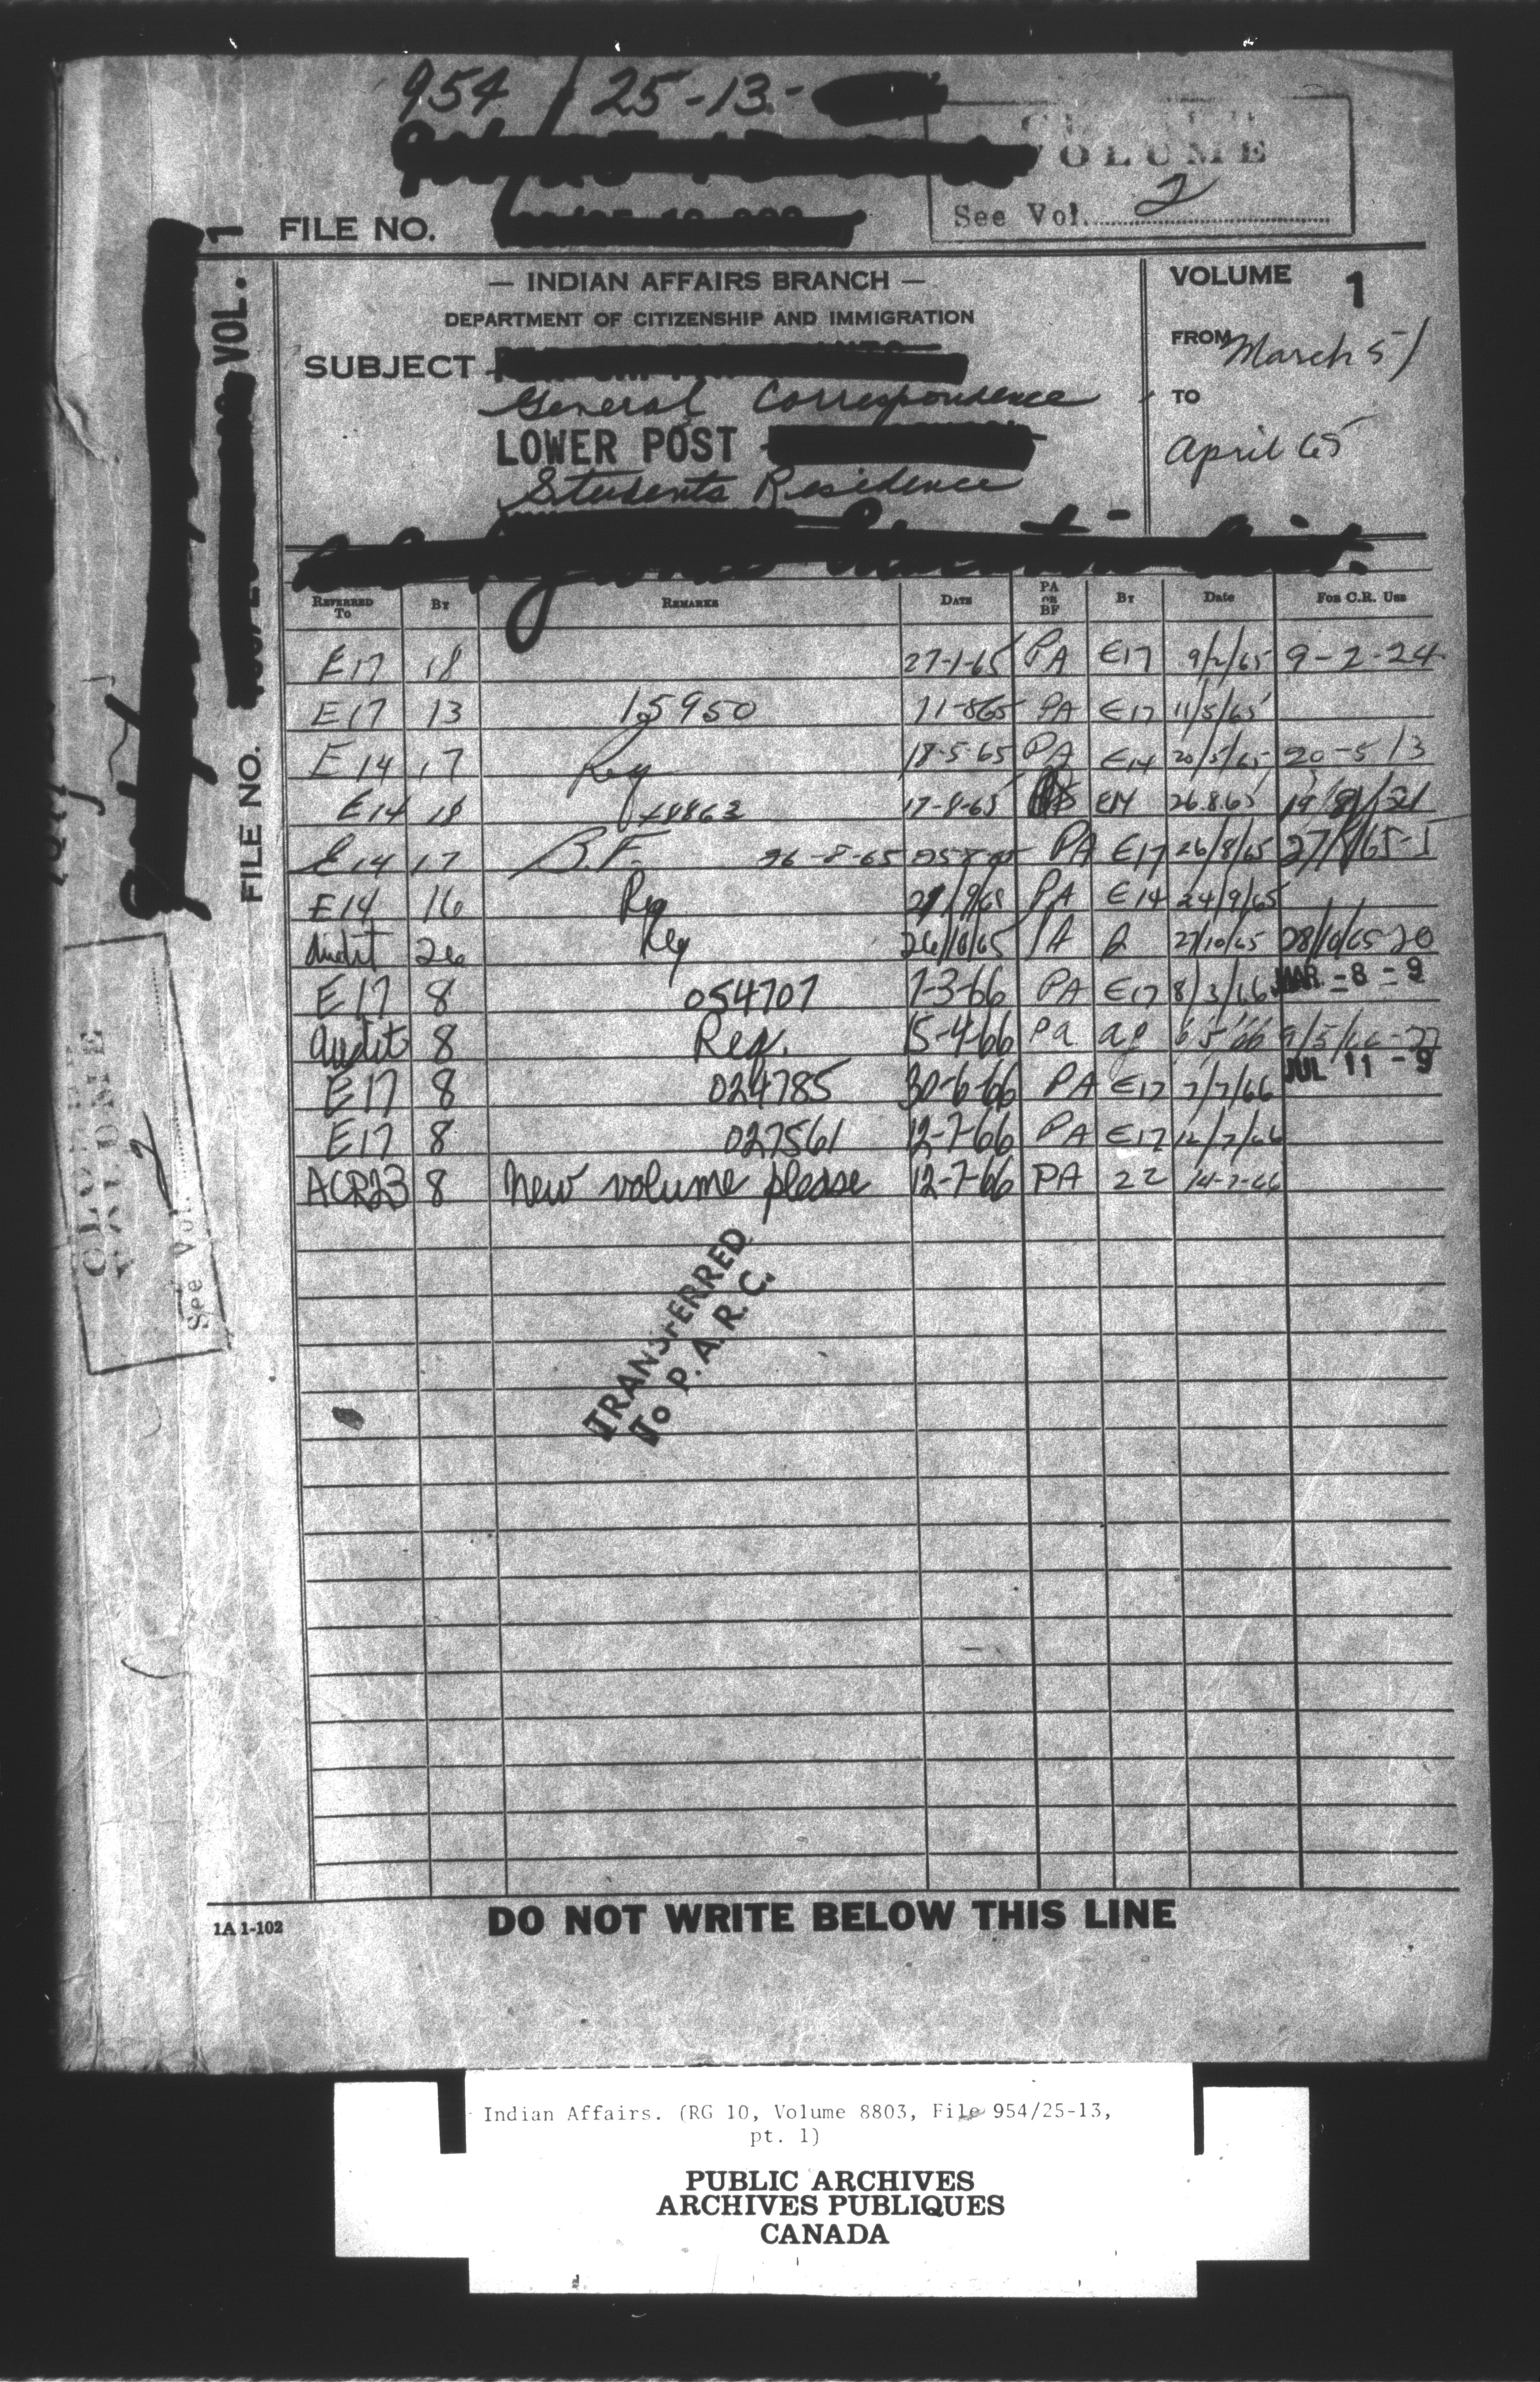 954 / 25-13-
VOLUME
See Vol. 2
FILE NO.
— INDIAN AFFAIRS BRANCH —
DEPARTMENT OF CITIZENSHIP AND IMMIGRATION
SUBJECT
General Correspondence
LOWER POST
Students Residence
VOLUME 1
FROM March 51
TO
April 65
FILE NO. VOL. 1
REFERRED TO BY REMARKS DATE PA OR BF BY Date FOR C.R. USE
E17 18 27-1-65 PA E17 9/2/65 9-2-24
E17 13 15950 11-865 PA E17 11/5/65
E14 17 Reg 18-5-65 PA E14 20/5/65 20-5 13
E14 18 17-8-65 E14 26.8.65
E14 17 B.F. 26-8-65 PA E17 26/8/65
E14 16 Reg PA E14 24/9/65
Audit 26 Reg 26/10/65 PA 27/10/65 28/10/65 20
E17 8 054707 7-3-66 PA E17 8/3/66 MAR.-8-9
Audit 8 Req. 15-4-66 PA
E17 8 024785 30-6-66 PA E17 7/7/66 JUL 11-9
E17 8 027561 12-7-66 PA E17 12/7/66
ACR23 8 New volume please 12-7-66 PA 22 14-7-66
TRANSFERRED
To P.A.R.C.
CLOSED
VOLUME
See Vol. 2
1A 1-102
DO NOT WRITE BELOW THIS LINE
Indian Affairs. (RG 10, Volume 8803, File 954/25-13,
pt. 1)
PUBLIC ARCHIVES
ARCHIVES PUBLIQUES
CANADA